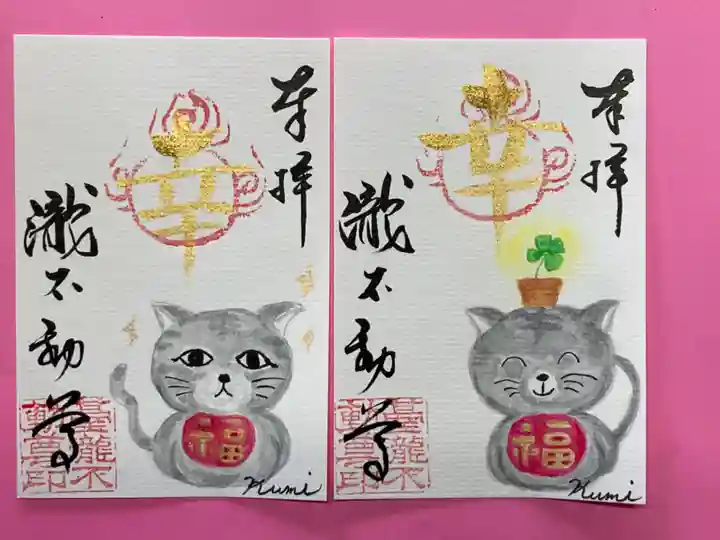 奉拝
幸
瀧不動尊
福
Kumi
奉拝
幸
瀧不動尊
福
Kumi